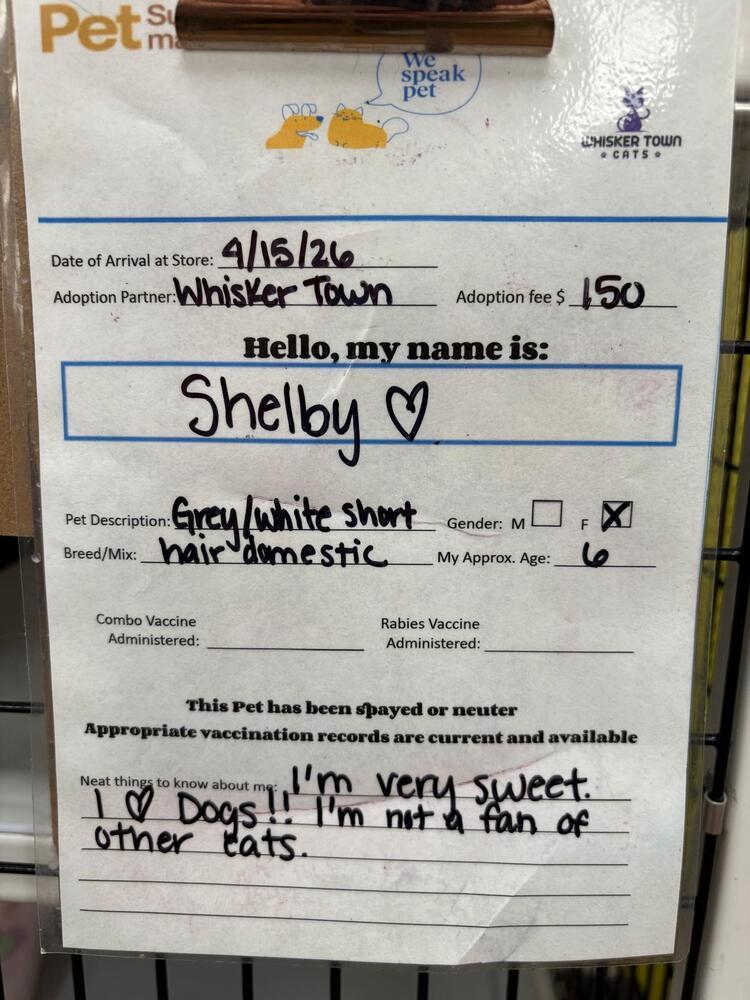 Pet Su
ma
We
speak
pet
WHISKER TOWN
CATS
Date of Arrival at Store: 4/15/26
Adoption Partner: Whisker Town Adoption fee $ 150
Hello, my name is:
Shelby ♡
Pet Description: Grey/white short Gender: M F X
Breed/Mix: hair domestic My Approx. Age: 6
Combo Vaccine Rabies Vaccine
Administered: Administered:
This Pet has been spayed or neuter
Appropriate vaccination records are current and available
Neat things to know about me: I'm very sweet.
I ♡ Dogs!! I'm not a fan of
other cats.